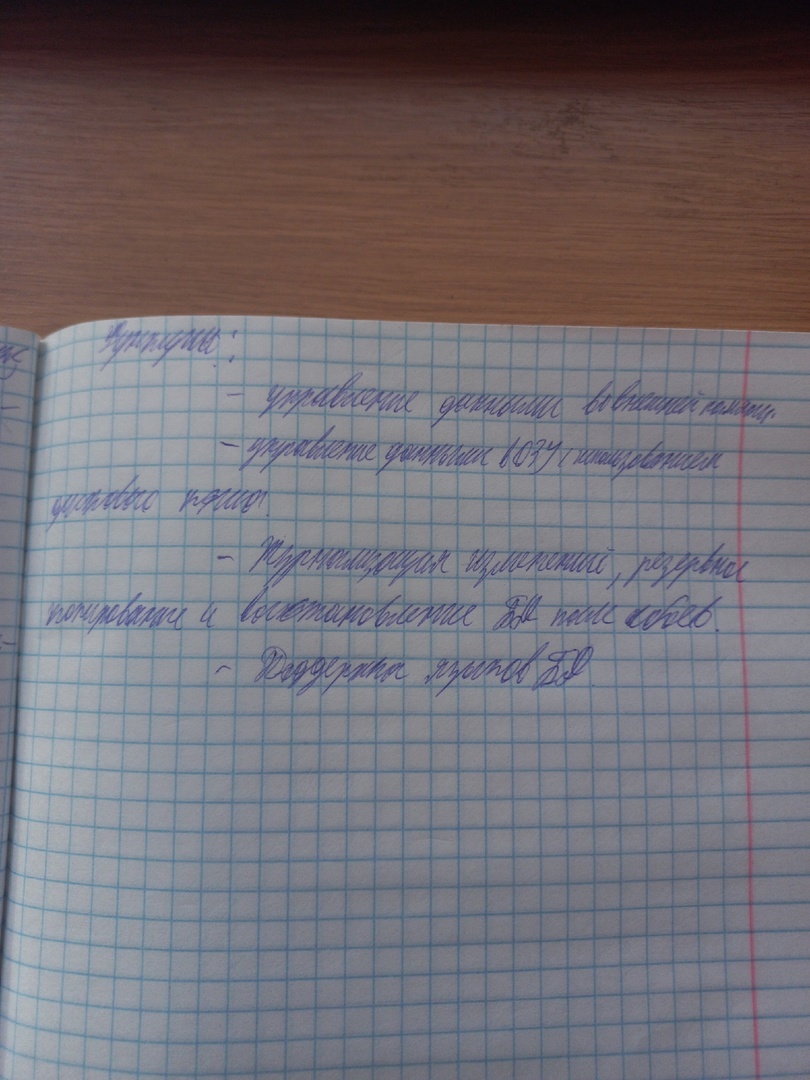 Функции:
- управление данными во внешней памяти.
- управление данными в ОЗУ с использованием
дискового кэша.
- Журнализация изменений, резервное
копирование и восстановление БД после сбоев.
- Поддержка языков БД